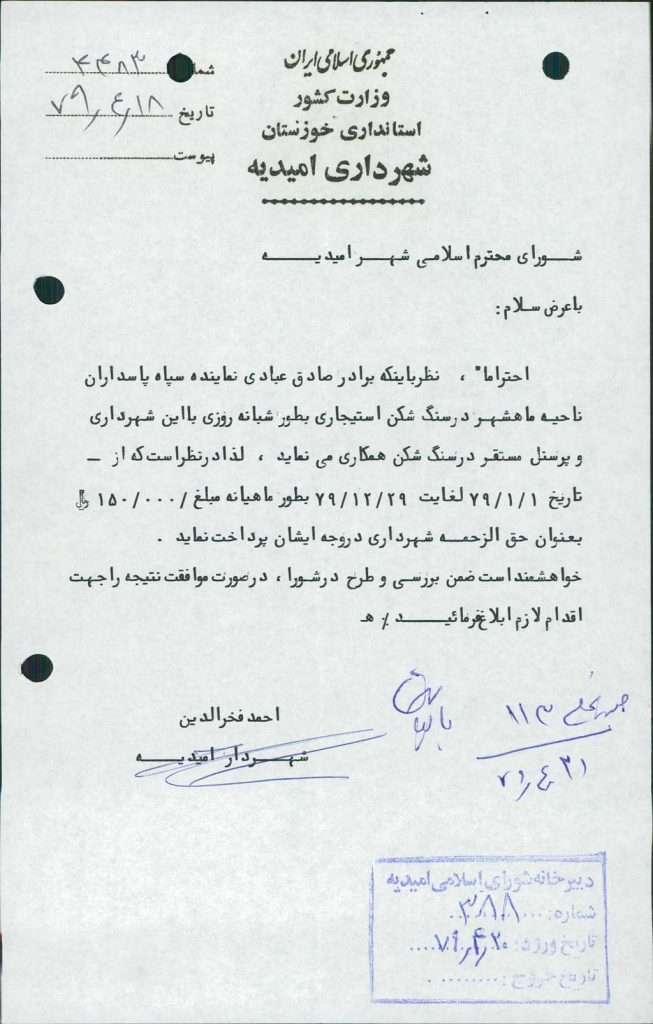 جمهوری اسلامی ایران
وزارت کشور
استانداری خوزستان
شهرداری امیدیه
شماره ۴۴۸۳
تاریخ ۷۹/۴/۱۸
پیوست
شورای محترم اسلامی شهر امیدیه
باعرض سلام :
احتراما" ، نظرباینکه برادر صادق عبادی نماینده سپاه پاسداران
ناحیه ماهشهر درسنگ شکن استیجاری بطور شبانه روزی بااین شهرداری
و پرسنل مستقر درسنگ شکن همکاری می نماید ، لذا درنظراست که از _
تاریخ ۷۹/۱/۱ لغایت ۷۹/۱۲/۲۹ بطور ماهیانه مبلغ /۱۵۰/۰۰۰ ریال
بعنوان حق الزحمه شهرداری دروجه ایشان پرداخت نماید .
خواهشمند است ضمن بررسی و طرح درشورا ، درصورت موافقت نتیجه را جهت
اقدام لازم ابلاغ فرمائید ٪ ه
۱۱۳
احمد فخرالدین
شهردار امیدیه
دبیرخانه شورای اسلامی امیدیه
شماره: ۳۸۸
تاریخ ورود: ۷۹/۴/۲۰
تاریخ خروج: